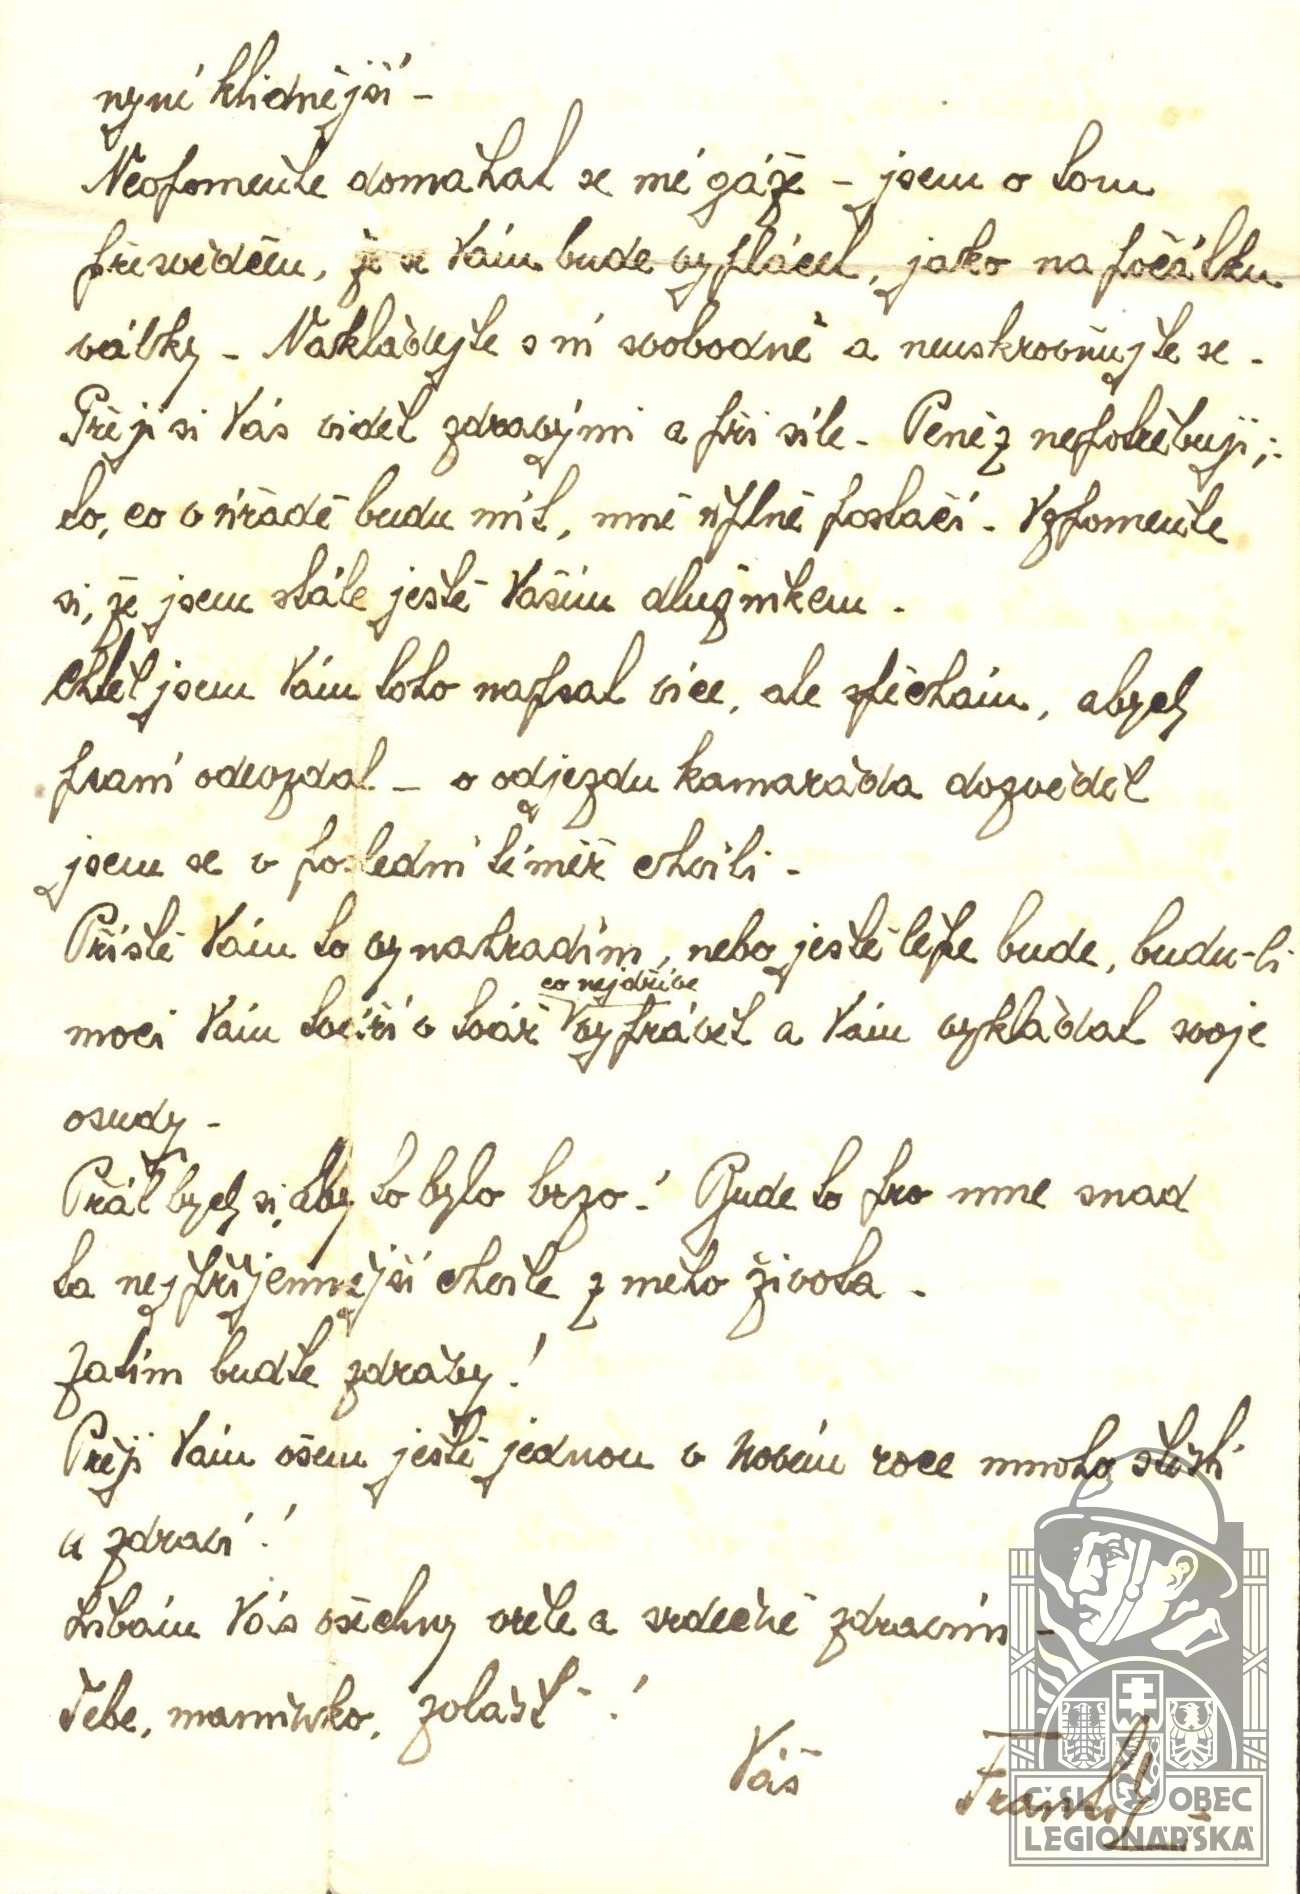 nyní klidnější –
Neopomeňte domáhat se mé gáže – jsem o tom
přesvědčen, že se Vám bude vyplácet, jako na počátku
války – Nakládejte s ní svobodně a neuskrovňujte se –
Přeji si Vás vidět zdravými a při síle – Peněz nepotřebuji;
to, co v úřadě budu mít, mně úplně postačí – Vzpomeňte
si, že jsem stále ještě Vaším dlužníkem –
Chtěl jsem Vám toho napsat více, ale spěchám, abych
psaní odevzdal – o odjezdu kamaráda dozvěděl
jsem se v poslední téměř chvíli –
Příště Vám to vynahradím, nebo ještě lépe bude, budu-li
co nejdříve
moci Vám tváří v tvář vyprávět a Vám vykládat svoje
osudy –
Přál bych si, aby to bylo brzo –! Bude to pro mne snad
ta nejpříjemnější chvíle z mého života –
Zatím buďte zdrávy!
Přeji Vám všem ještě jednou v Novém roce mnoho štěstí
a zdraví!
Líbám Vás všechny vřele a srdečně zdravím –
Tebe, maminko, zvlášť!
Váš František
ČSL. OBEC
LEGIONÁŘSKÁ